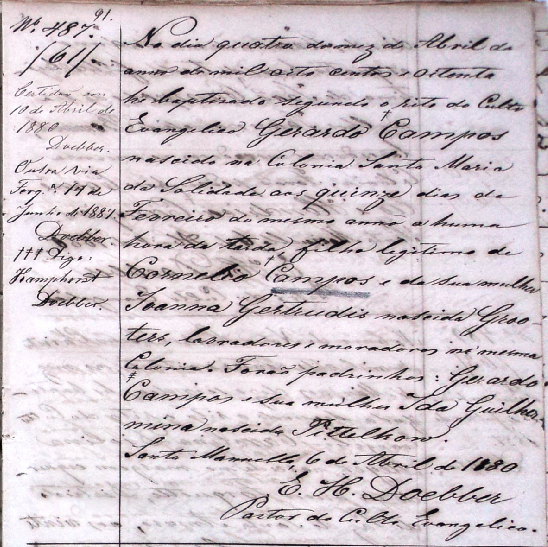 91.
Nº 487.
/61/
Certidão em
10 de Abril de
1880
Doebber.
Outra via
Terç. 14 de
Junho de 1881
Doebber.
††† Digo:
Kamphorst
Doebber.
No dia quatro do mez de Abril do
anno de mil oito centos e oitenta
foi baptizado segundo o rito do Culto
Evangelico Gerardo ‡Campos
nascido na Colonia Santa Maria
da Solidade aos quinze dias de
Fevreiro do mesmo anno a huma
hora da tarde, filho legitimo de
Cornelio †Campos e da sua mulher
Joanna Gertrudis nascida Groo-
ters, lavradores e moradores na mesma
Colonia. Forão padrinhos: Gerardo
‡Campos e sua mulher Ida Guilher-
mina nascida Pittelkow.
Santa Manuella, 6 de Abril de 1880
E. H. Doebber
Pastor do Culto Evangelico.